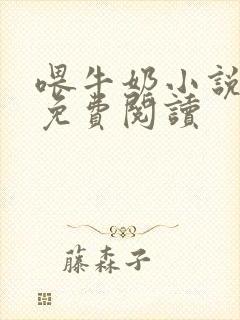 喂牛奶小說
免費閱讀
藤森子